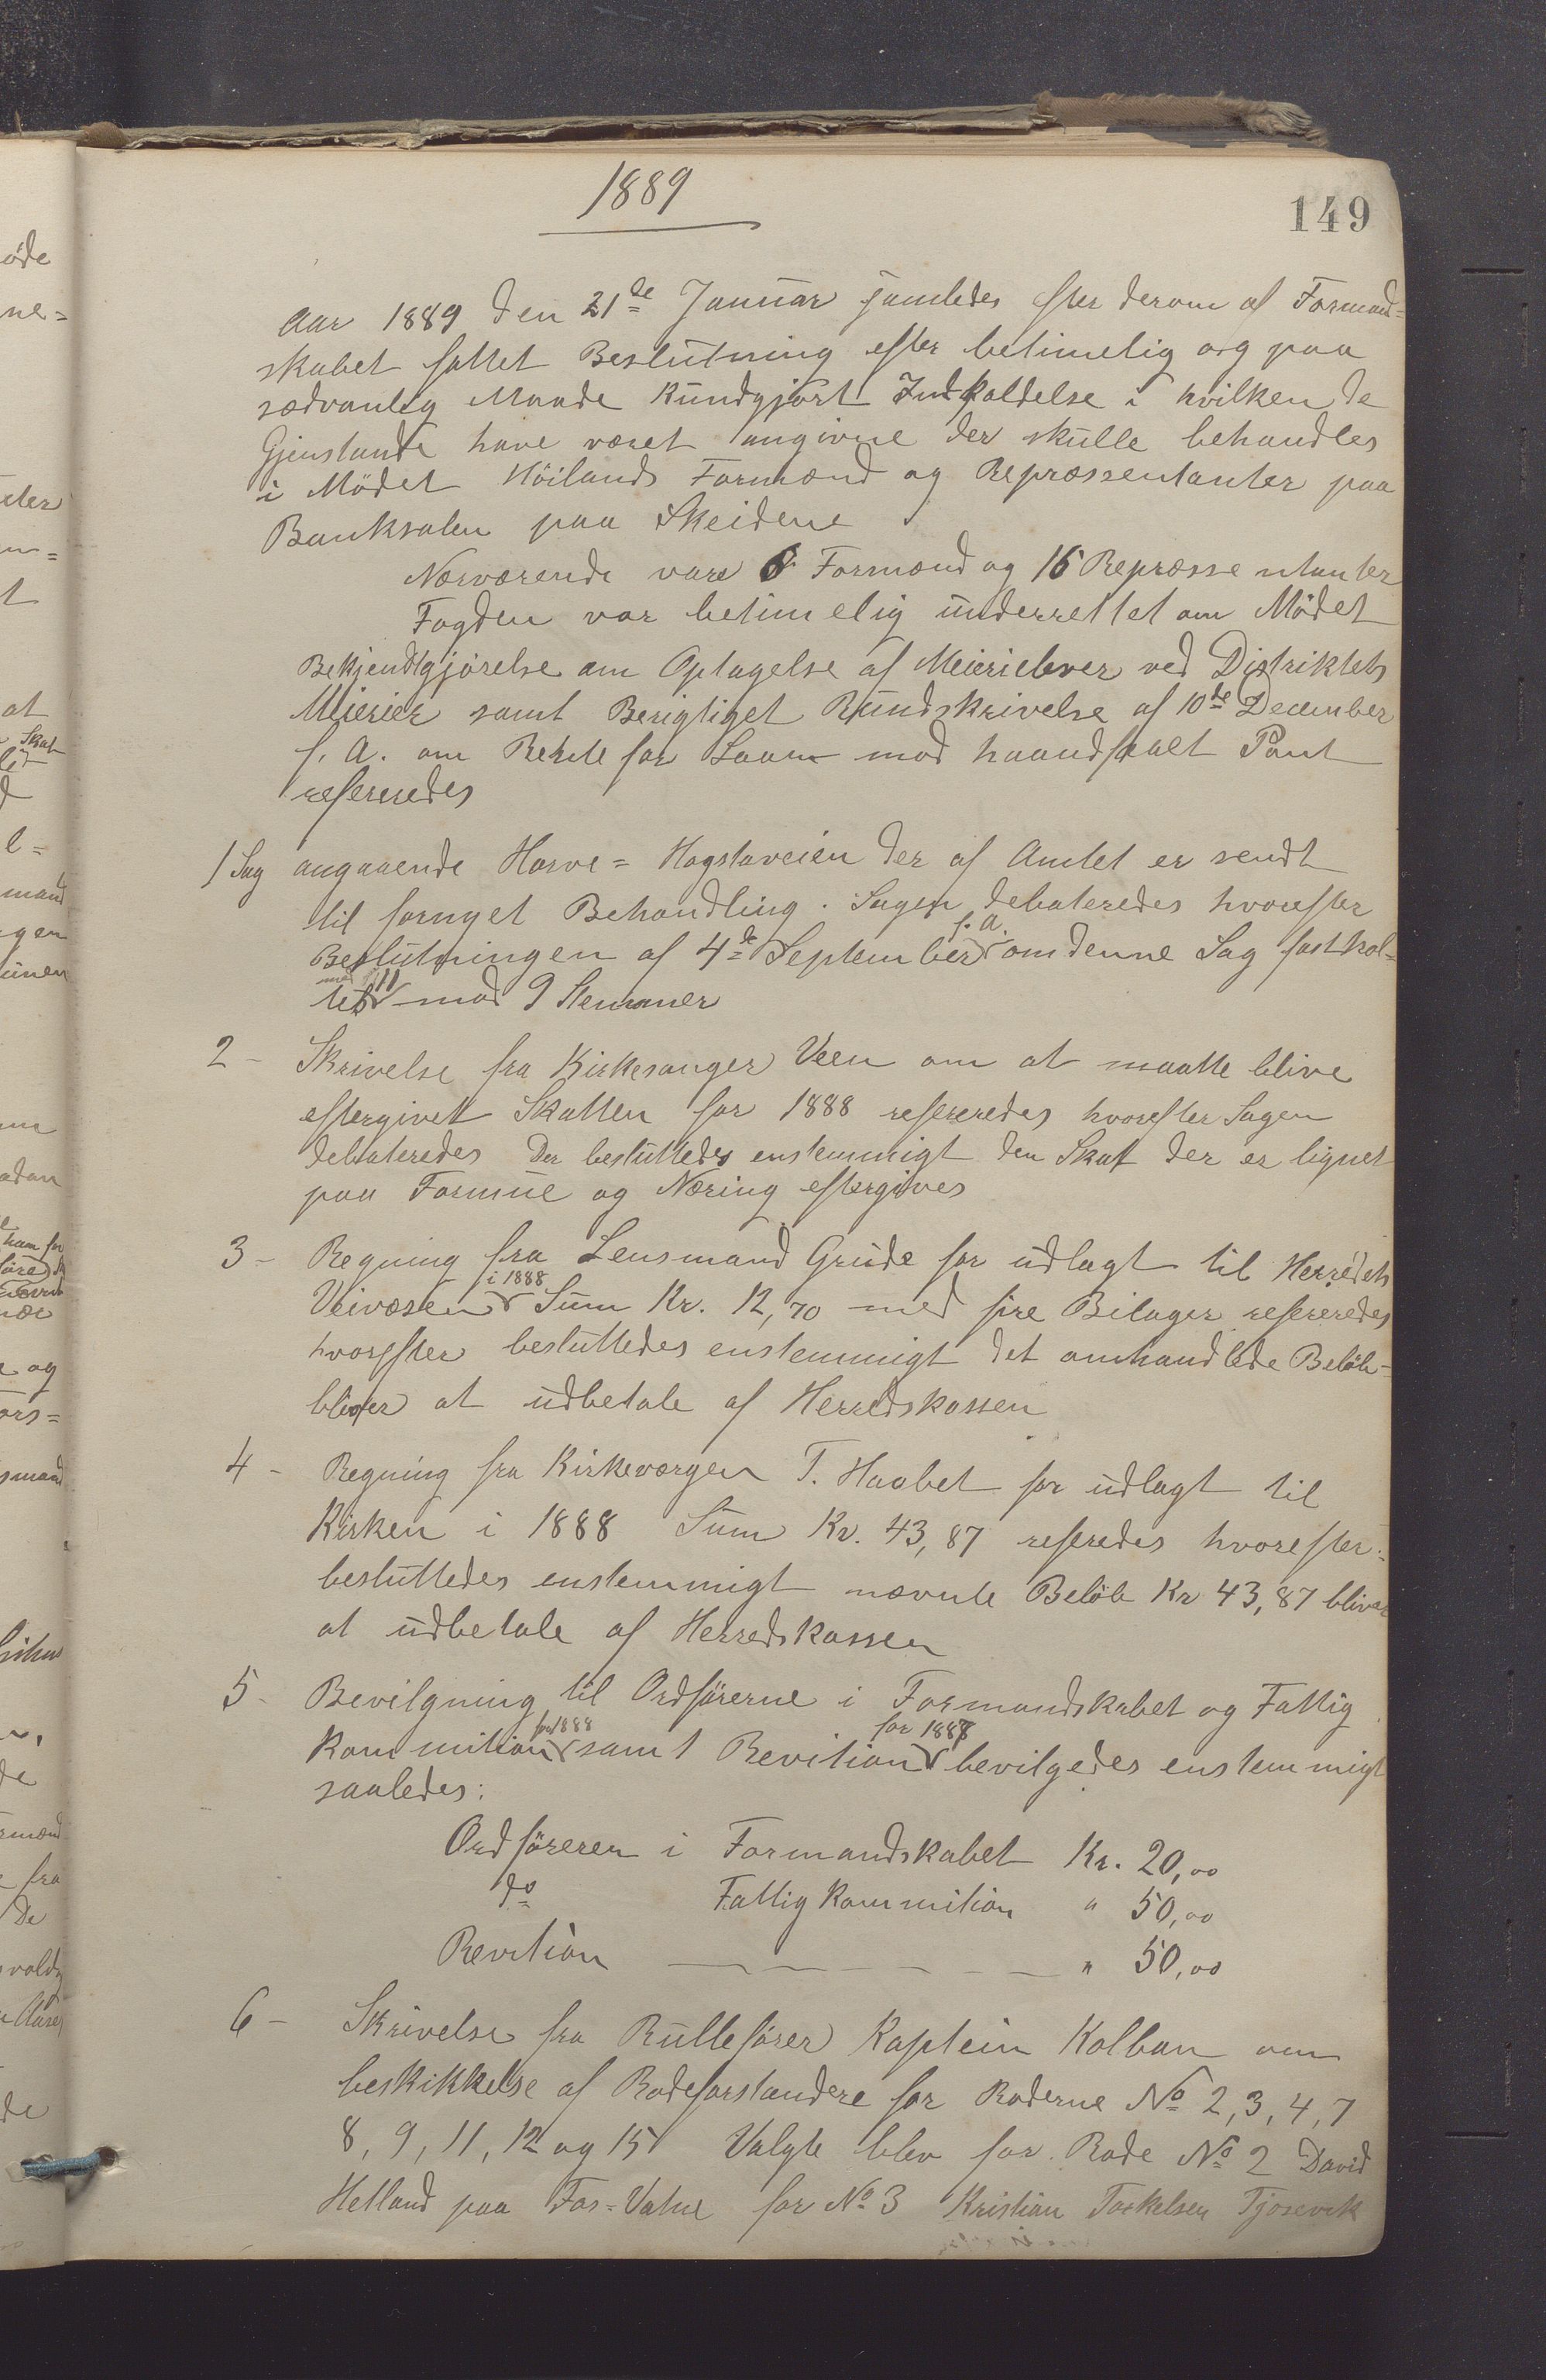 1889
149
Aar 1889 den 21de Januar samledes efter derom af Formand=
skabet fattet Beslutning efter betimelig og paa
sædvanlig Maade kundgjort Indkaldelse i hvilken de
Gjenstande have været angivne der skulle behandles
i Mödet Höilands Formænd og Repræssentanter paa
Banksalen paa Skeidene
Nærværende vare 6 Formænd og 16 Repræssentanter
Fogden var betimelig underrettet om Mödet
Bekjendtgjörelse om Optagelse af Meierielever ved Distriktets
Meierier samt Berigtiget Rundskrivelse af 10de December
f. A. om Rente for Laan mod haandfaaet Pant
refereredes
1 Sag angaaende Harve= Hogstaveien der af Amtet er sendt
til fornyet Behandling. Sagen debateredes hvorefter
f. A.
Beslutningen af 4de September om denne Sag fasthol=
med 11
tes mod 9 Stemmer
2 - Skrivelse fra Kirkesanger Veen om at maatte blive
eftergivet Skatten for 1888 refereredes hvorefter Sagen
debateredes Der besluttedes enstemmigt den Skat der er lignet
paa Formue og Næring eftergives
3 - Regning fra Lensmand Grude for udlagt til Herredets
i 1888
Veivæsen Sum Kr. 12,70 med fire Bilager refereredes
hvorefter besluttedes enstemmigt det omhandlede Belöb
bliver at udbetale af Herredskassen
4 - Regning fra Kirkeværgen T. Haabet for udlagt til
Kirken i 1888 Sum Kr. 43,87 referedes hvorefter
besluttedes enstemmigt nævnte Belöb Kr 43,87 bliver
at udbetale af Herredskassen
5 - Bevilgning til Ordförerne i Formandskabet og Fattig
for 1888 for 1887
Kommition samt Revition bevilgedes enstemmigt
saaledes:
Ordföreren i Formandskabet Kr. 20,00
do Fattigkommition " 50,00
Revition " 50,00
6 - Skrivelse fra Rulleförer Kaptein Kolban om
beskikkelse af Rodeforstandere for Roderne No 2, 3, 4, 7
8, 9, 11, 12 og 15 Valgte blev for Rode No 2 David
Helland paa Fos=Vatne for No 3 Kristian Torkelsen Tjosevik